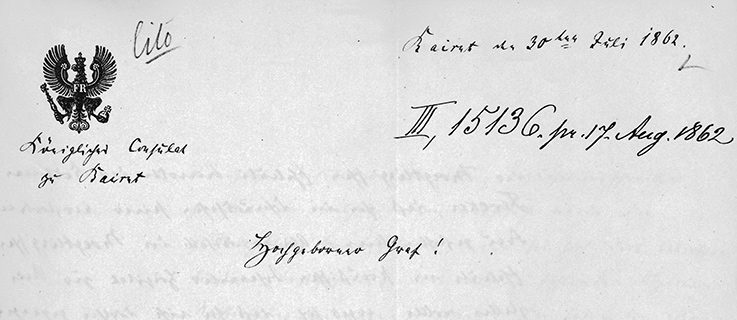 Cito
Kairet den 30ten Juli 1862.
FR
III, 15136. pr. 17. Aug. 1862
Königliches Consulat
zu Kairet
Hochgeborener Graf!